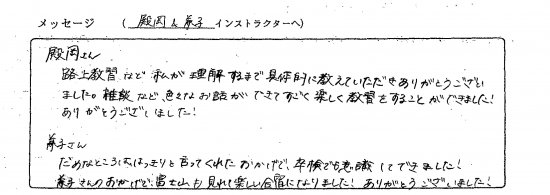 メッセージ ( 殿岡 & 兼子 インストラクターへ)
殿岡さん
路上教習など 私が理解するまで具体的に教えていただきありがとうござい
ました。雑談など、色々なお話ができてすごく楽しく教習をすることができました!
ありがとうございました!
兼子さん
だめなところははっきりと言ってくれたおかげで、卒検でも意識してできました!
兼子さんのおかげで、富士山も見れて楽しい合宿になりました! ありがとうございました!